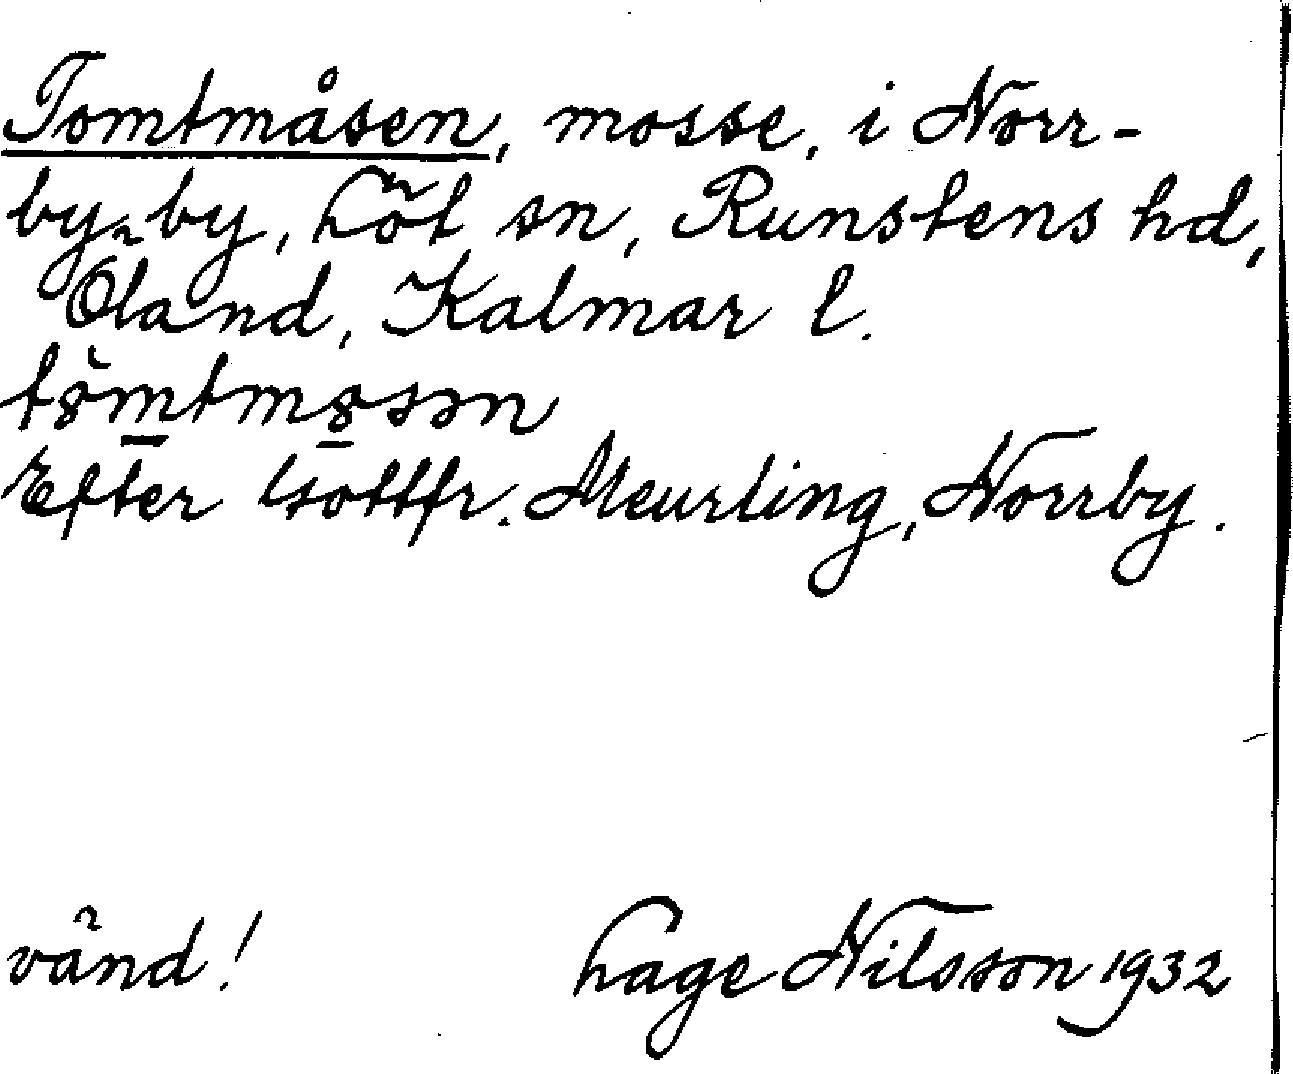 Tomtmåsen, mosse, i Norr-
by by, Löt sn, Runstens hd,
Öland, Kalmar l.
Efter Gottfr. Meurling, Norrby.
vänd! Lage Nilsson 1932